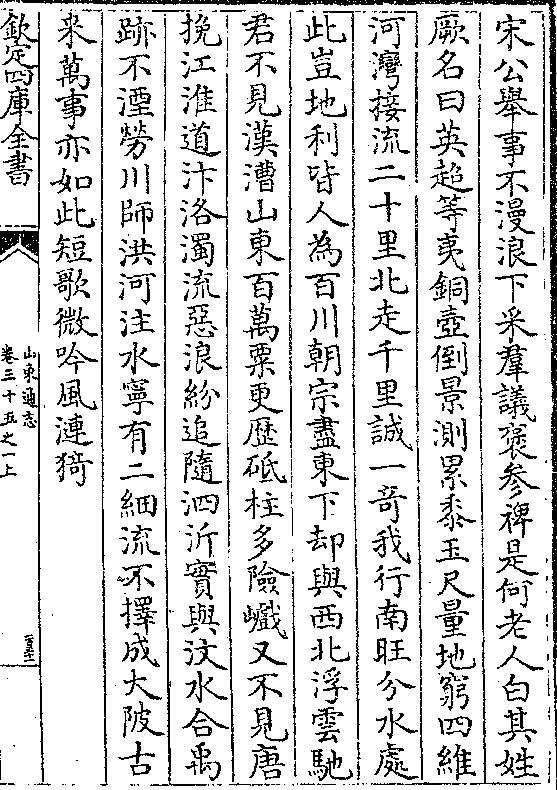 宋公舉事不漫浪下采羣議裒參禆是何老人白其姓
厥名曰英超等夷銅壺倒景測累黍玉尺量地窮四維
河灣接流二十里北走千里誠一竒我行南旺分水處
此豈地利皆人為百川朝宗盡東下却與西北浮雲馳
君不見漢漕山東百萬粟更歴砥柱多險巇又不見唐
挽江淮道汴洛濁流惡浪紛追隨泗沂實與汶水合禹
跡不湮勞川師洪河注水寧有二細流不擇成大陂古
来萬事亦如此短歌微吟風漣猗
欽定四庫全書
山東通志
卷三十五之一上